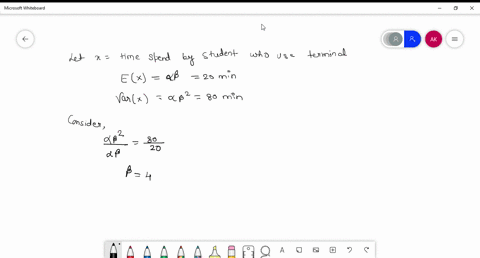 Microsoft Whiteboard
AK
Let x = time spend by student who use terminal
E(x) = αβ = 20 min
Var(x) = αβ² = 80 min
Consider,
αβ²/αβ = 80/20
β = 4
A